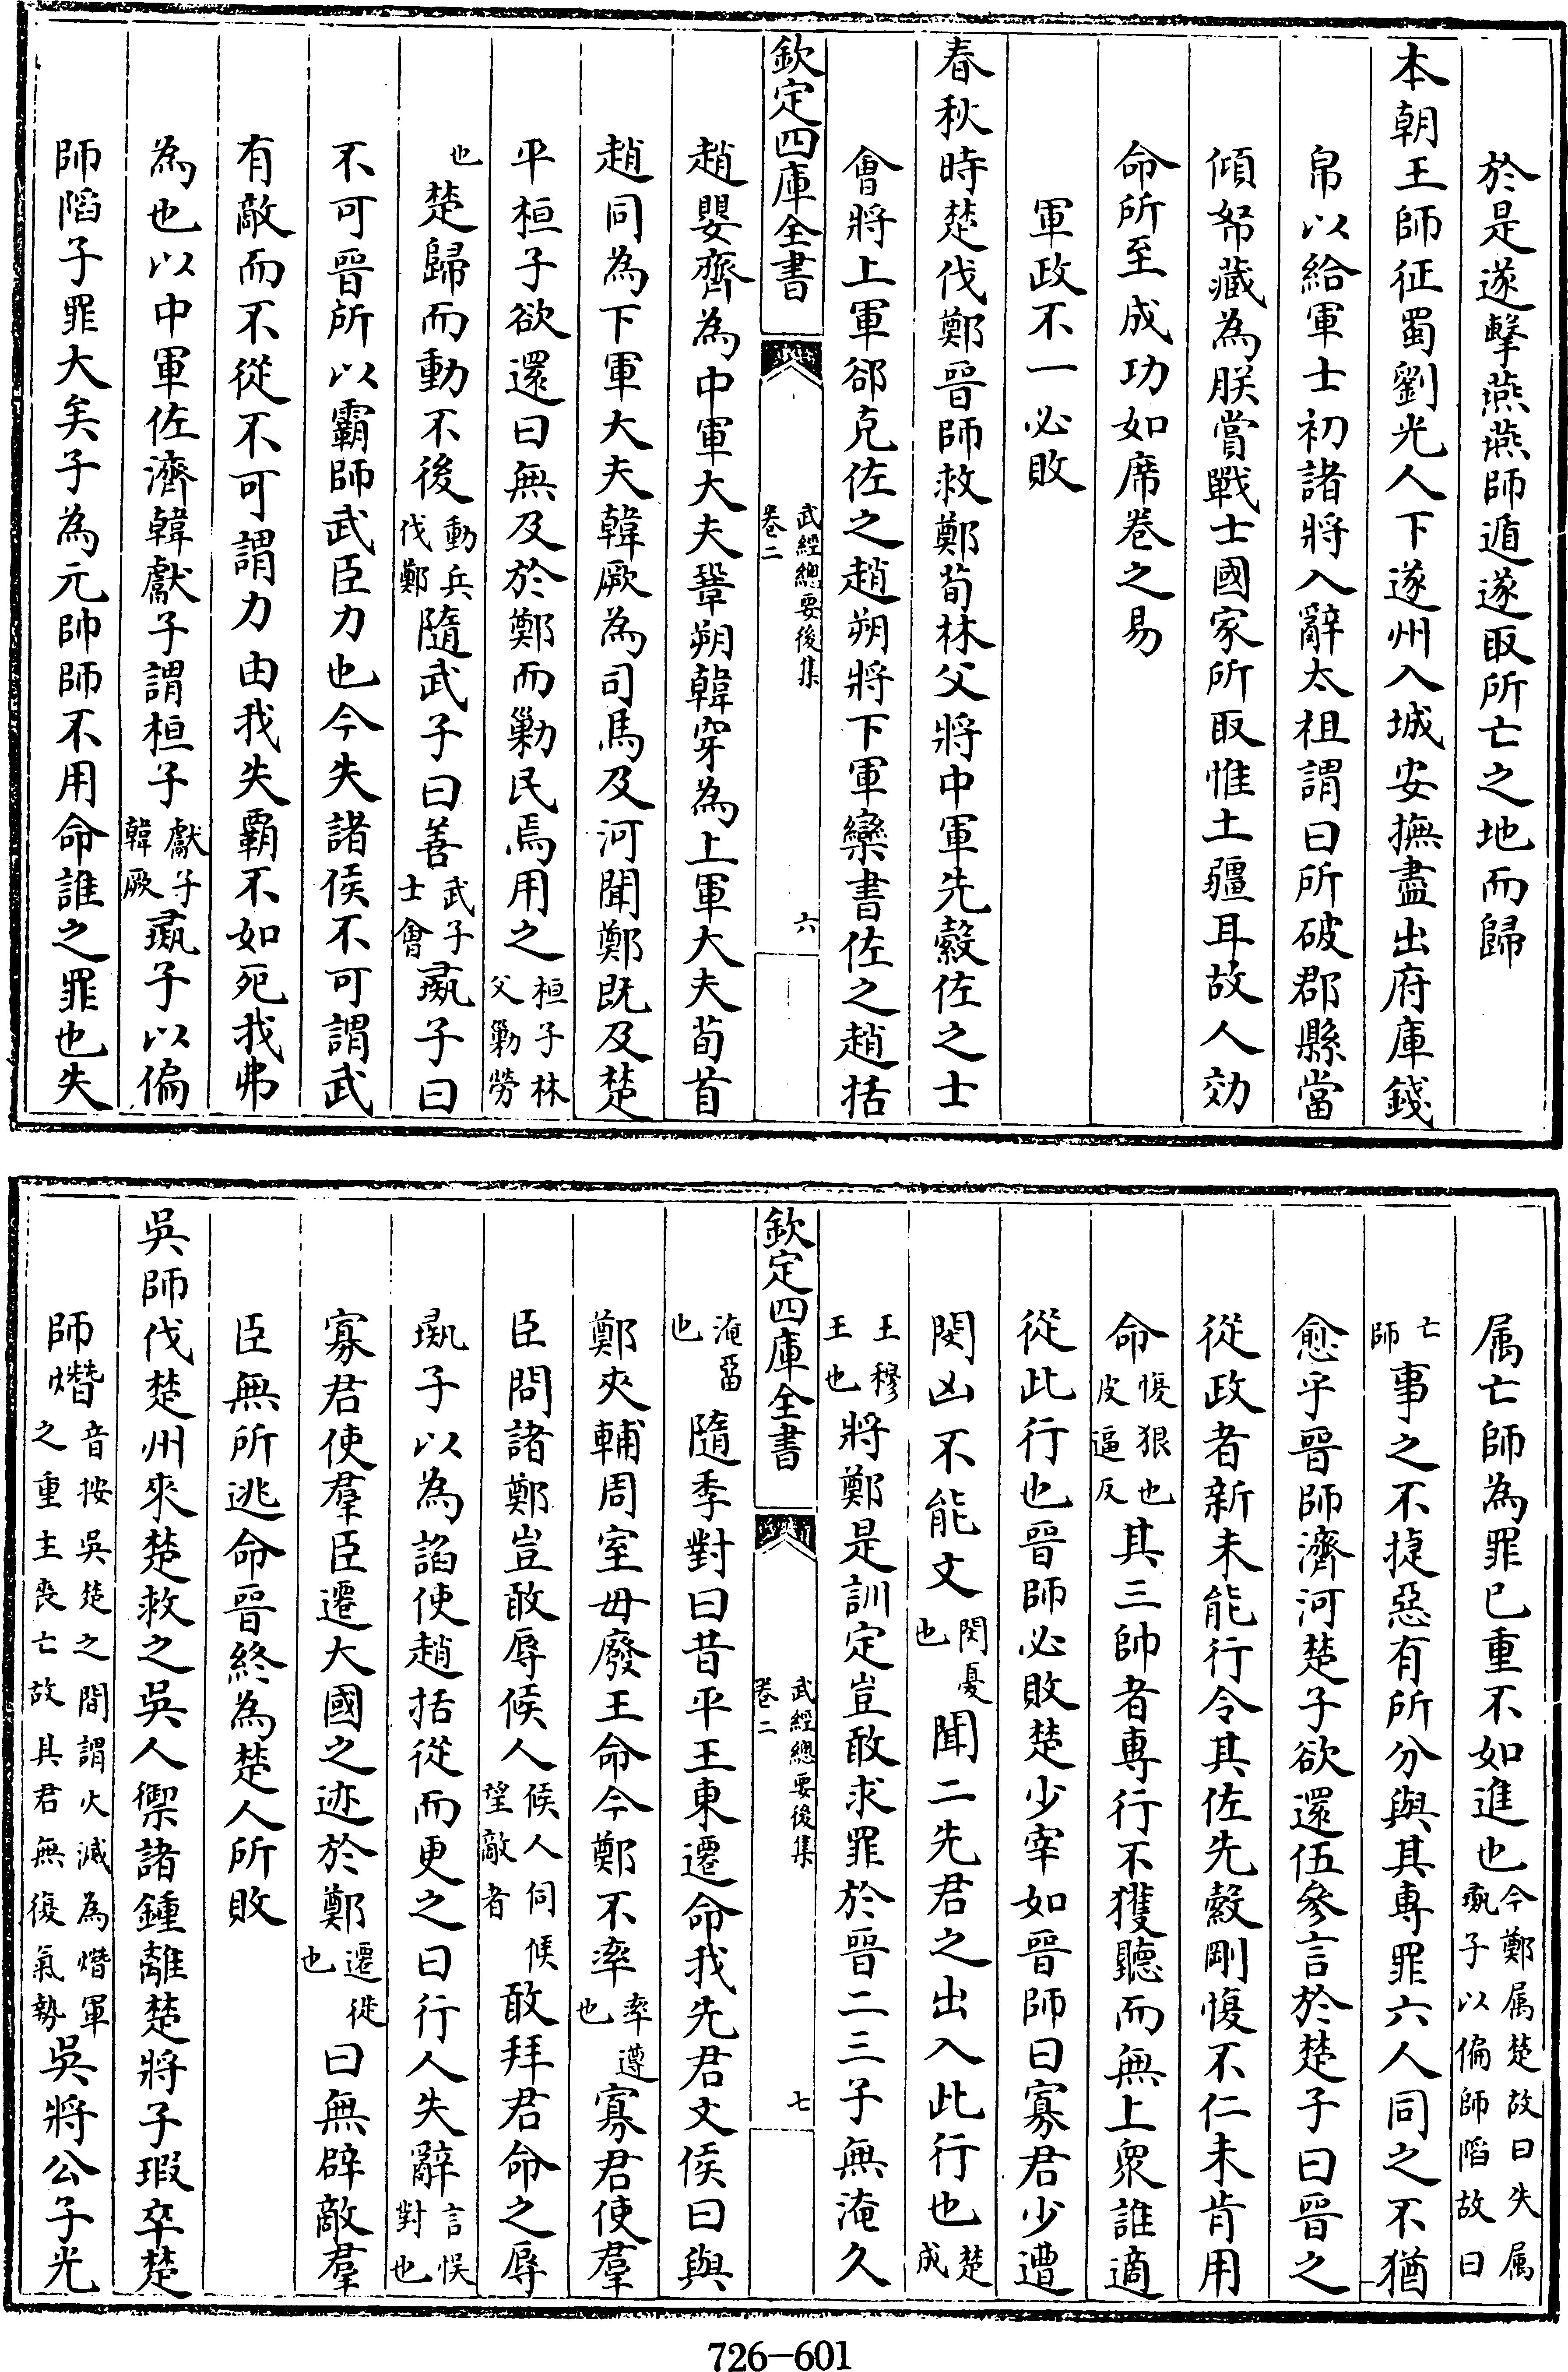 於是遂擊燕燕師遁遂取所亡之地而歸
本朝王師征蜀劉光人下遂州入城安撫盡出府庫錢
帛以給軍士初諸將入辭太祖謂曰所破郡縣當
傾帑藏為朕賞戰士國家所取惟土疆耳故人効
命所至成功如席卷之易
軍政不一必敗
春秋時楚伐鄭晉師救鄭荀林父將中軍先縠佐之士
會將上軍郤克佐之趙朔將下軍欒書佐之趙括
欽定四庫全書
武經總要後集
卷二
六
趙嬰齊為中軍大夫鞏朔韓穿為上軍大夫荀首
趙同為下軍大夫韓厥為司馬及河聞鄭既及楚
平桓子欲還曰無及於鄭而勦民焉用之桓子林父勦勞
也楚歸而動不後動兵伐鄭隨武子曰善武子士會彘子曰
不可晉所以霸師武臣力也今失諸侯不可謂武
有敵而不從不可謂力由我失霸不如死我弗
為也以中軍佐濟韓獻子謂桓子獻子韓厥彘子以偏
師陷子罪大矣子為元帥師不用命誰之罪也失
属亡師為罪已重不如進也今鄭属楚故曰失属彘子以偏師陷故曰
亡師事之不捷惡有所分與其專罪六人同之不猶
愈乎晉師濟河楚子欲還伍參言於楚子曰晉之
從政者新未能行令其佐先縠剛愎不仁未肯用
命愎狠也皮逼反其三帥者專行不獲聽而無上衆誰適
從此行也晉師必敗楚少宰如晉師曰寡君少遭
閔凶不能文閔憂也聞二先君之出入此行也楚成
王穆王也將鄭是訓定豈敢求罪於晉二三子無淹久
欽定四庫全書
武經總要後集
卷二
七
淹畱也隨季對曰昔平王東遷命我先君文侯曰與
鄭夾輔周室毋廢王命今鄭不率率遵也寡君使羣
臣問諸鄭豈敢辱候人候人伺候望敵者敢拜君命之辱
彘子以為諂使趙括從而更之曰行人失辭言悮對也
寡君使羣臣遷大國之迹於鄭遷徙也曰無辟敵羣
臣無所逃命晉終為楚人所敗
吳師伐楚州來楚救之吳人禦諸鍾離楚將子瑕卒楚
師熸音按吳楚之間謂火滅為熸軍之重主喪亡故其君無復氣勢吳將公子光
726-601